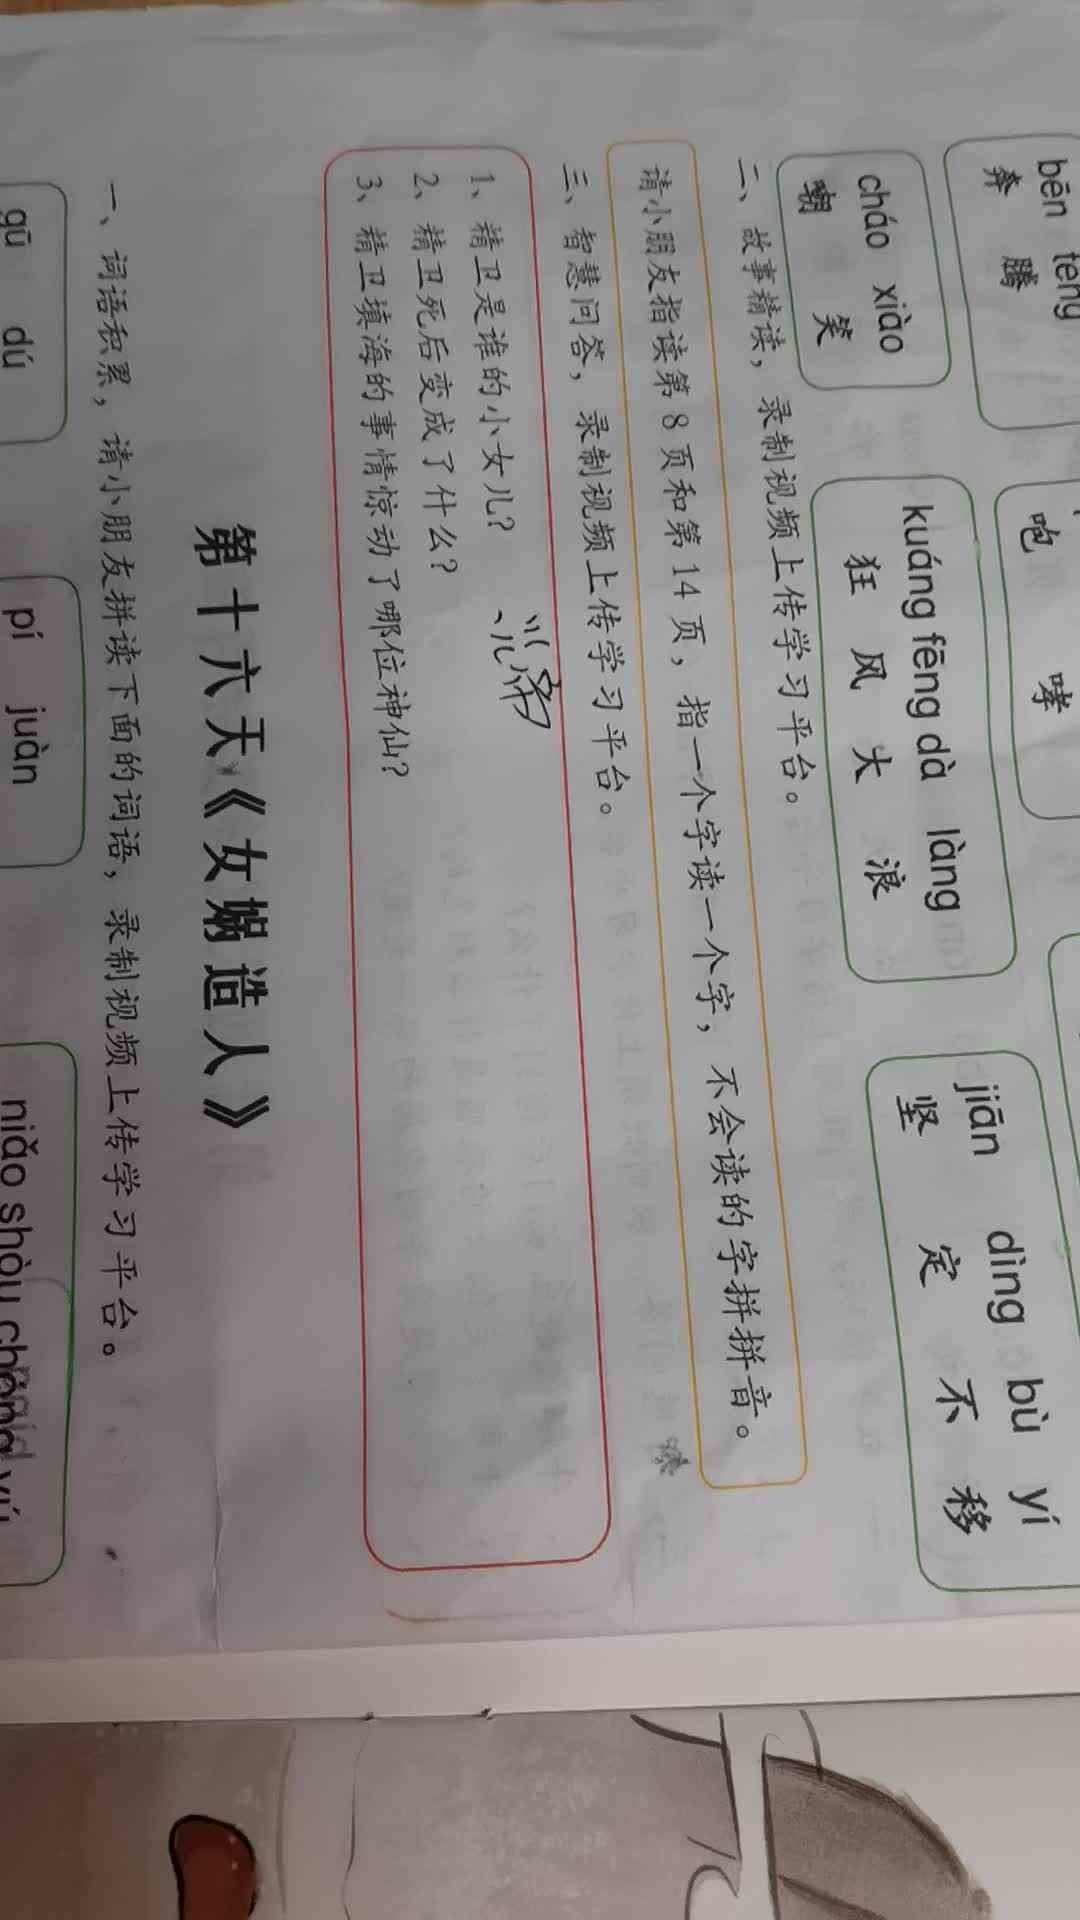 bēn téng
奔 腾
咆 哮
cháo xiào
嘲 笑
kuáng fēng dà làng
狂 风 大 浪
jiān dìng bù yí
坚 定 不 移
二、故事精读，录制视频上传学习平台。
请小朋友指读第8页和第14页，指一个字读一个字，不会读的字拼拼音。
三、智慧问答，录制视频上传学习平台。
1、精卫是谁的小女儿？
炎帝
2、精卫死后变成了什么？
3、精卫填海的事情惊动了哪位神仙？
第十六天《女娲造人》
一、词语积累，请小朋友拼读下面的词语，录制视频上传学习平台。
gū dú
pí juàn
niǎo shòu chóng yú